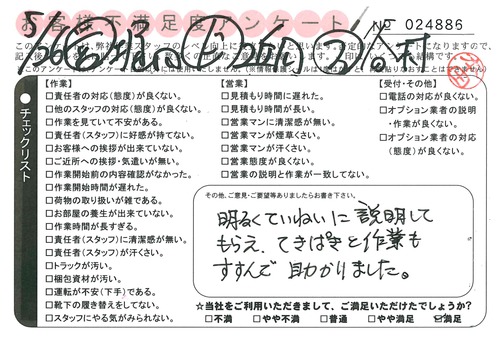 お客様不満足度アンケート
NO 024886
チェックリスト
【作業】
□責任者の対応(態度)が良くない。
□他のスタッフの対応(態度)が良くない。
□作業を見ていて不安がある。
□責任者(スタッフ)に好感が持てない。
□お客様への挨拶が出来ていない。
□ご近所への挨拶・気遣いが無い。
□作業開始前の内容確認がなかった。
□作業開始時間が遅れた。
□荷物の取り扱いが雑である。
□お部屋の養生が出来ていない。
□作業時間が長すぎる。
□責任者(スタッフ)に清潔感が無い。
□責任者(スタッフ)が汗くさい。
□トラックが汚い。
□梱包資材が汚い。
□運転が不安(下手)である。
□靴下の履き替えをしてない。
□スタッフにやる気がみられない。
【営業】
□見積もり時間に遅れた。
□見積もり時間が長い。
□営業マンに清潔感が無い。
□営業マンが煙草くさい。
□営業マンが汗くさい。
□営業態度が良くない。
□営業の説明と作業が一致してない。
【受付・その他】
□電話の対応が良くない。
□オプション業者の説明
・作業が良くない。
□オプション業者の対応
(態度)が良くない。
その他、ご意見・ご要望等ありましたらお書き下さい。
明るくていねいに説明して
もらえ、てきぱきと作業も
すすんで助かりました。
☆当社をご利用いただきまして、ご満足いただけたでしょうか?
□不満 □やや不満 □普通 □やや満足 ☑満足